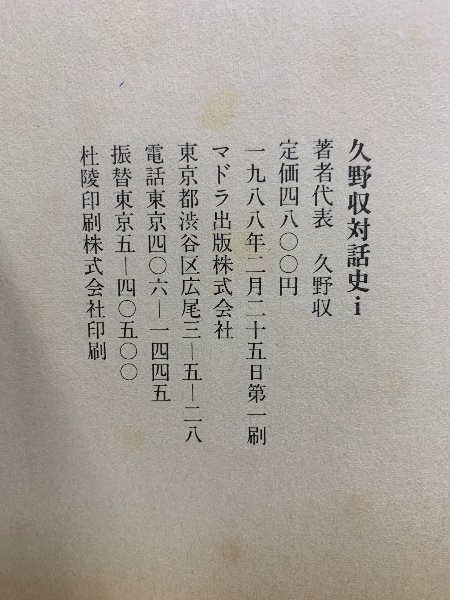 久野収対話史i
著者代表　久野収
定価四八〇〇円
一九八八年二月二十五日第一刷
マドラ出版株式会社
東京都渋谷区広尾三―五―二八
電話東京四〇六―一四四五
振替東京五―四〇五〇〇
杜陵印刷株式会社印刷